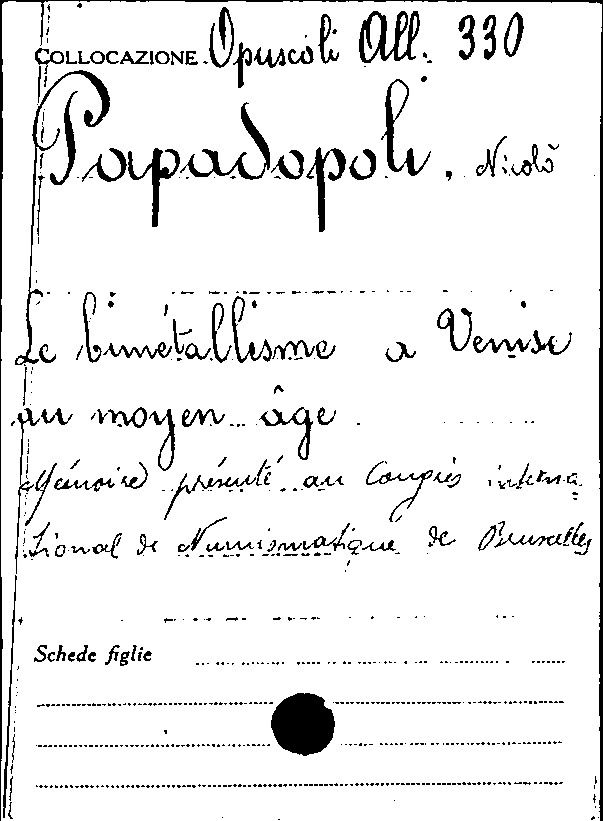 COLLOCAZIONE Opuscoli All. 330
Papadopoli, Nicolò
Le bimétallisme a Venise
au moyen âge
Mémoire présenté au Congrès interna=
tional de Numismatique de Bruxelles
Schede figlie